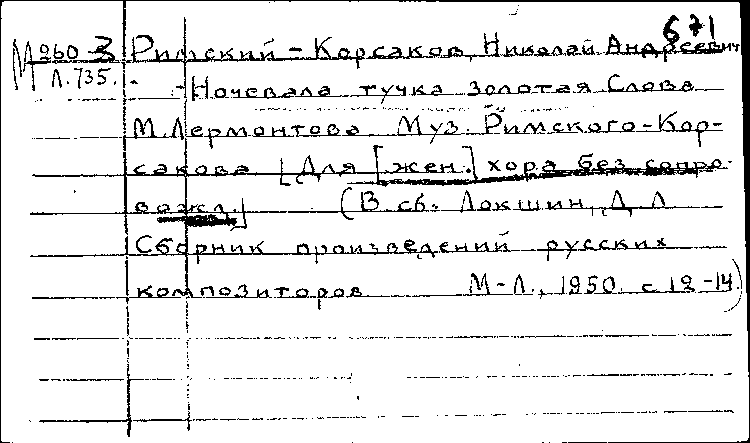 671
М260-3 Римский-Корсаков, Николай Андреевич
Л.735. Ночевала тучка золотая. Слова
М. Лермонтова. Муз. Римского-Кор-
сакова. [Для [жен.] хора без сопро-
вожд.] (В сб. Локшин, Д. Л.
Сборник произведений русских
композиторов. М-Л., 1950. с 12-14)